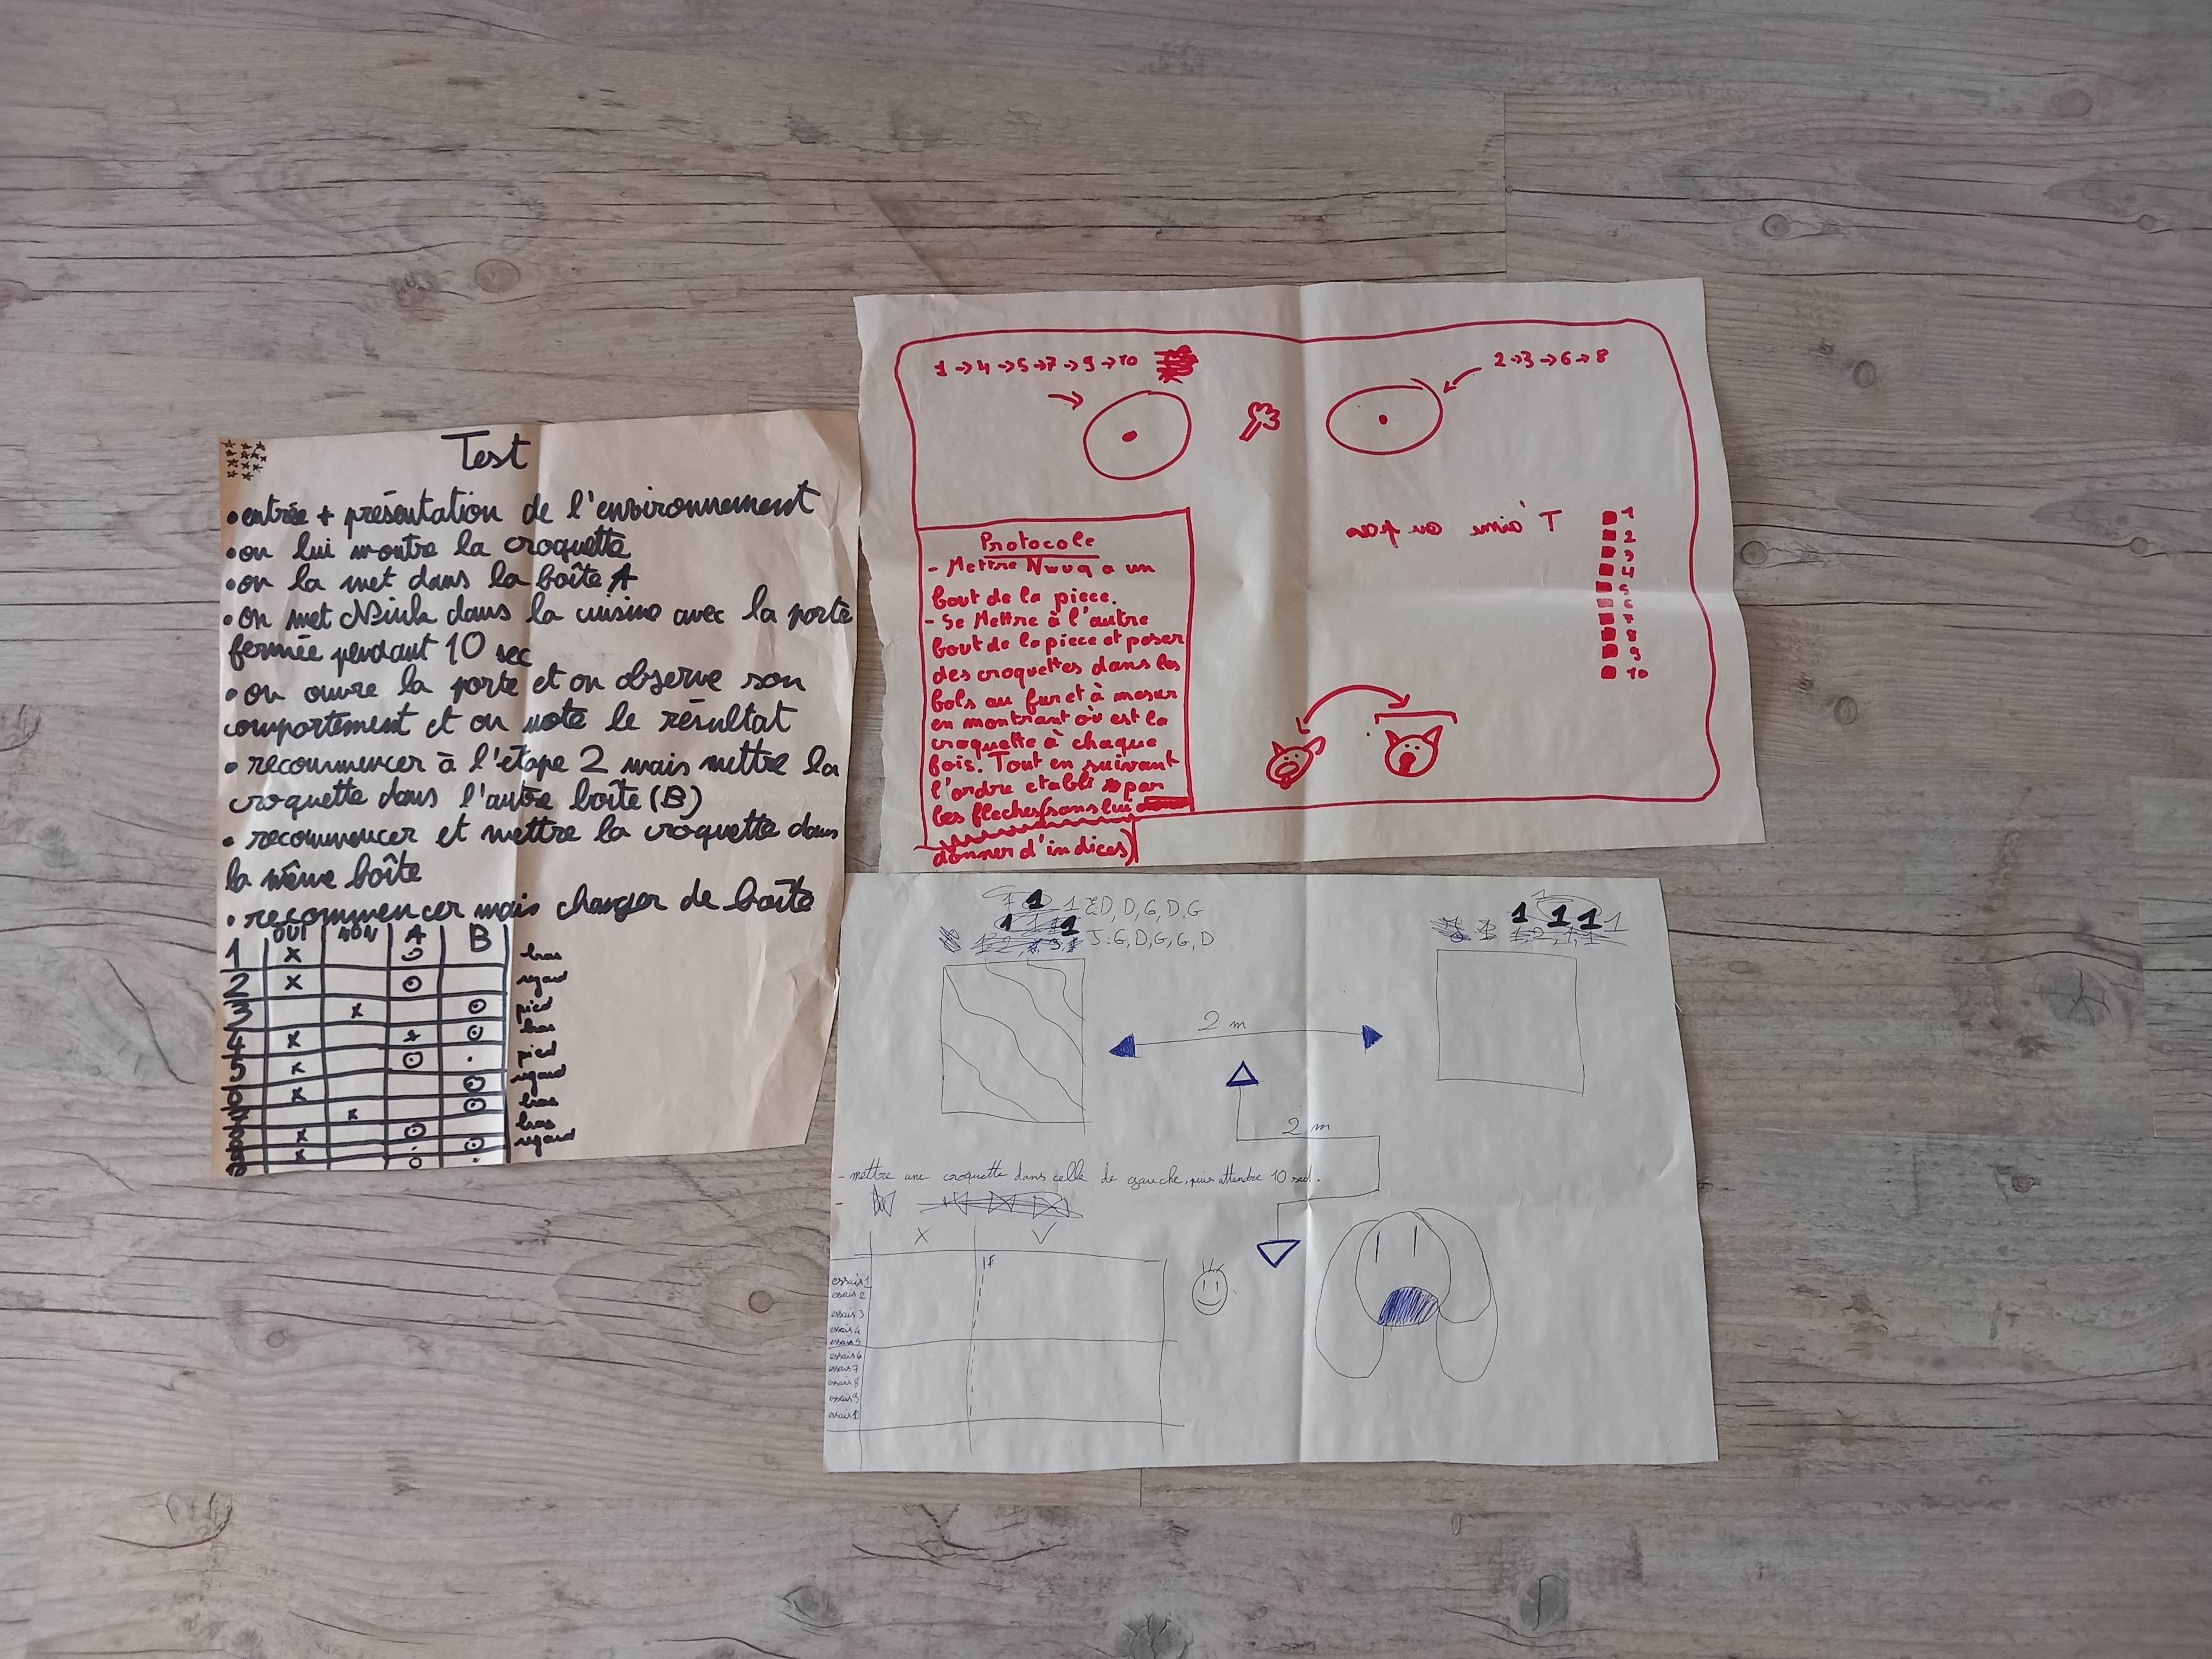 Test
• entrée + présentation de l'environnement
• on lui montre la croquette
• on la met dans la boîte A
• on met dans la cuisine avec la porte
fermée pendant 10 sec
• on ouvre la porte et on observe son
comportement et on note le résultat
• recommencer à l'étape 2 mais mettre la
croquette dans l'autre boîte (B)
• recommencer et mettre la croquette dans
la même boîte
• recommencer mais changer de boîte
OUI NON A B
1 x bras
2 x regard
3 x pied
4 x bras
5 x pied
x regard
x bras
x bras
x regard
1 → 4 → 5 → 7 → 9 → 10
2 → 3 → 6 → 8
Protocole
- Mettre a un
bout de la piece.
- Se Mettre à l'autre
bout de la piece et poser
des croquettes dans les
bols au fur et à mesur
en montrant où est la
croquette à chaque
fois. Tout en suivant
l'ordre etabli par
les fleches (sans lui
donner d'indices)
T'aime ou pas
1
2
3
4
5
6
7
8
9
10
D, D, G, D, G
J : G, D, G, G, D
2 m
2 m
- mettre une croquette dans celle de gauche, puis attendre 10 sec.
X V
essais 1
essais 2
essais 3
essais 4
essais 5
essais 6
essais 7
essais 8
essais 9
essais 10